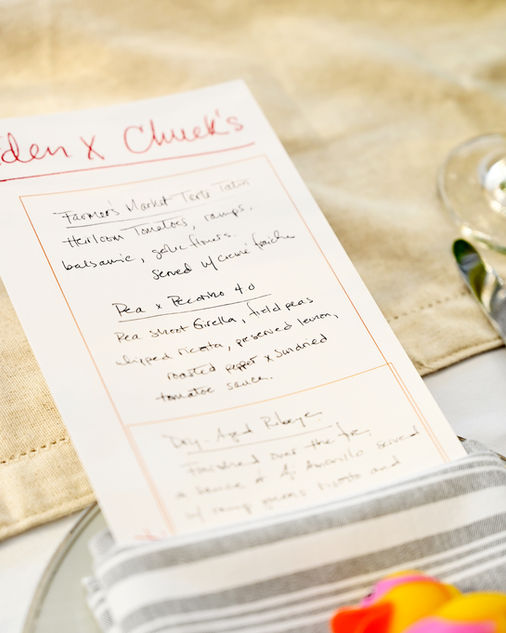 den x Chuck's
Farmer's Market Tarte Tatin
Heirloom Tomatoes, ramps,
balsamic, garlic flowers.
Served w/ crème fraîche
Pea x Pecorino 4.0
Pea shoot Girella, field peas
whipped ricotta, preserved lemon,
roasted pepper x sundried
tomatoe sauce.
Dry-Aged Ribeye
Finished over the fire, served
a sauce of Aji Amarillo
w/ ramp greens risotto and